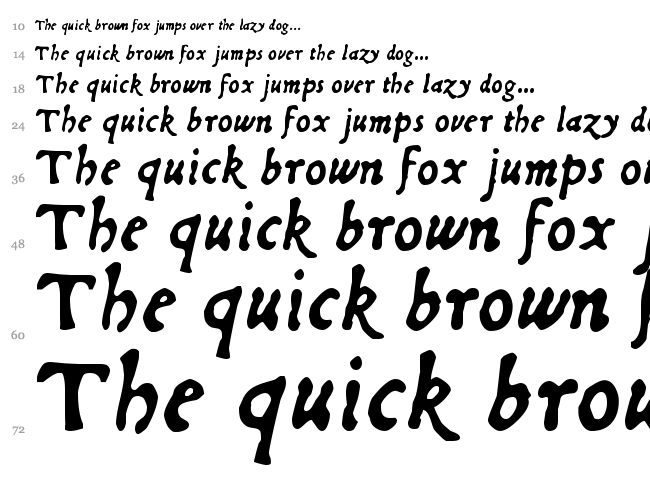 10 The quick brown fox jumps over the lazy dog...
14 The quick brown fox jumps over the lazy dog...
18 The quick brown fox jumps over the lazy dog...
24 The quick brown fox jumps over the lazy do
36 The quick brown fox jumps ov
48 The quick brown fox j
60 The quick brown f
72 The quick brow